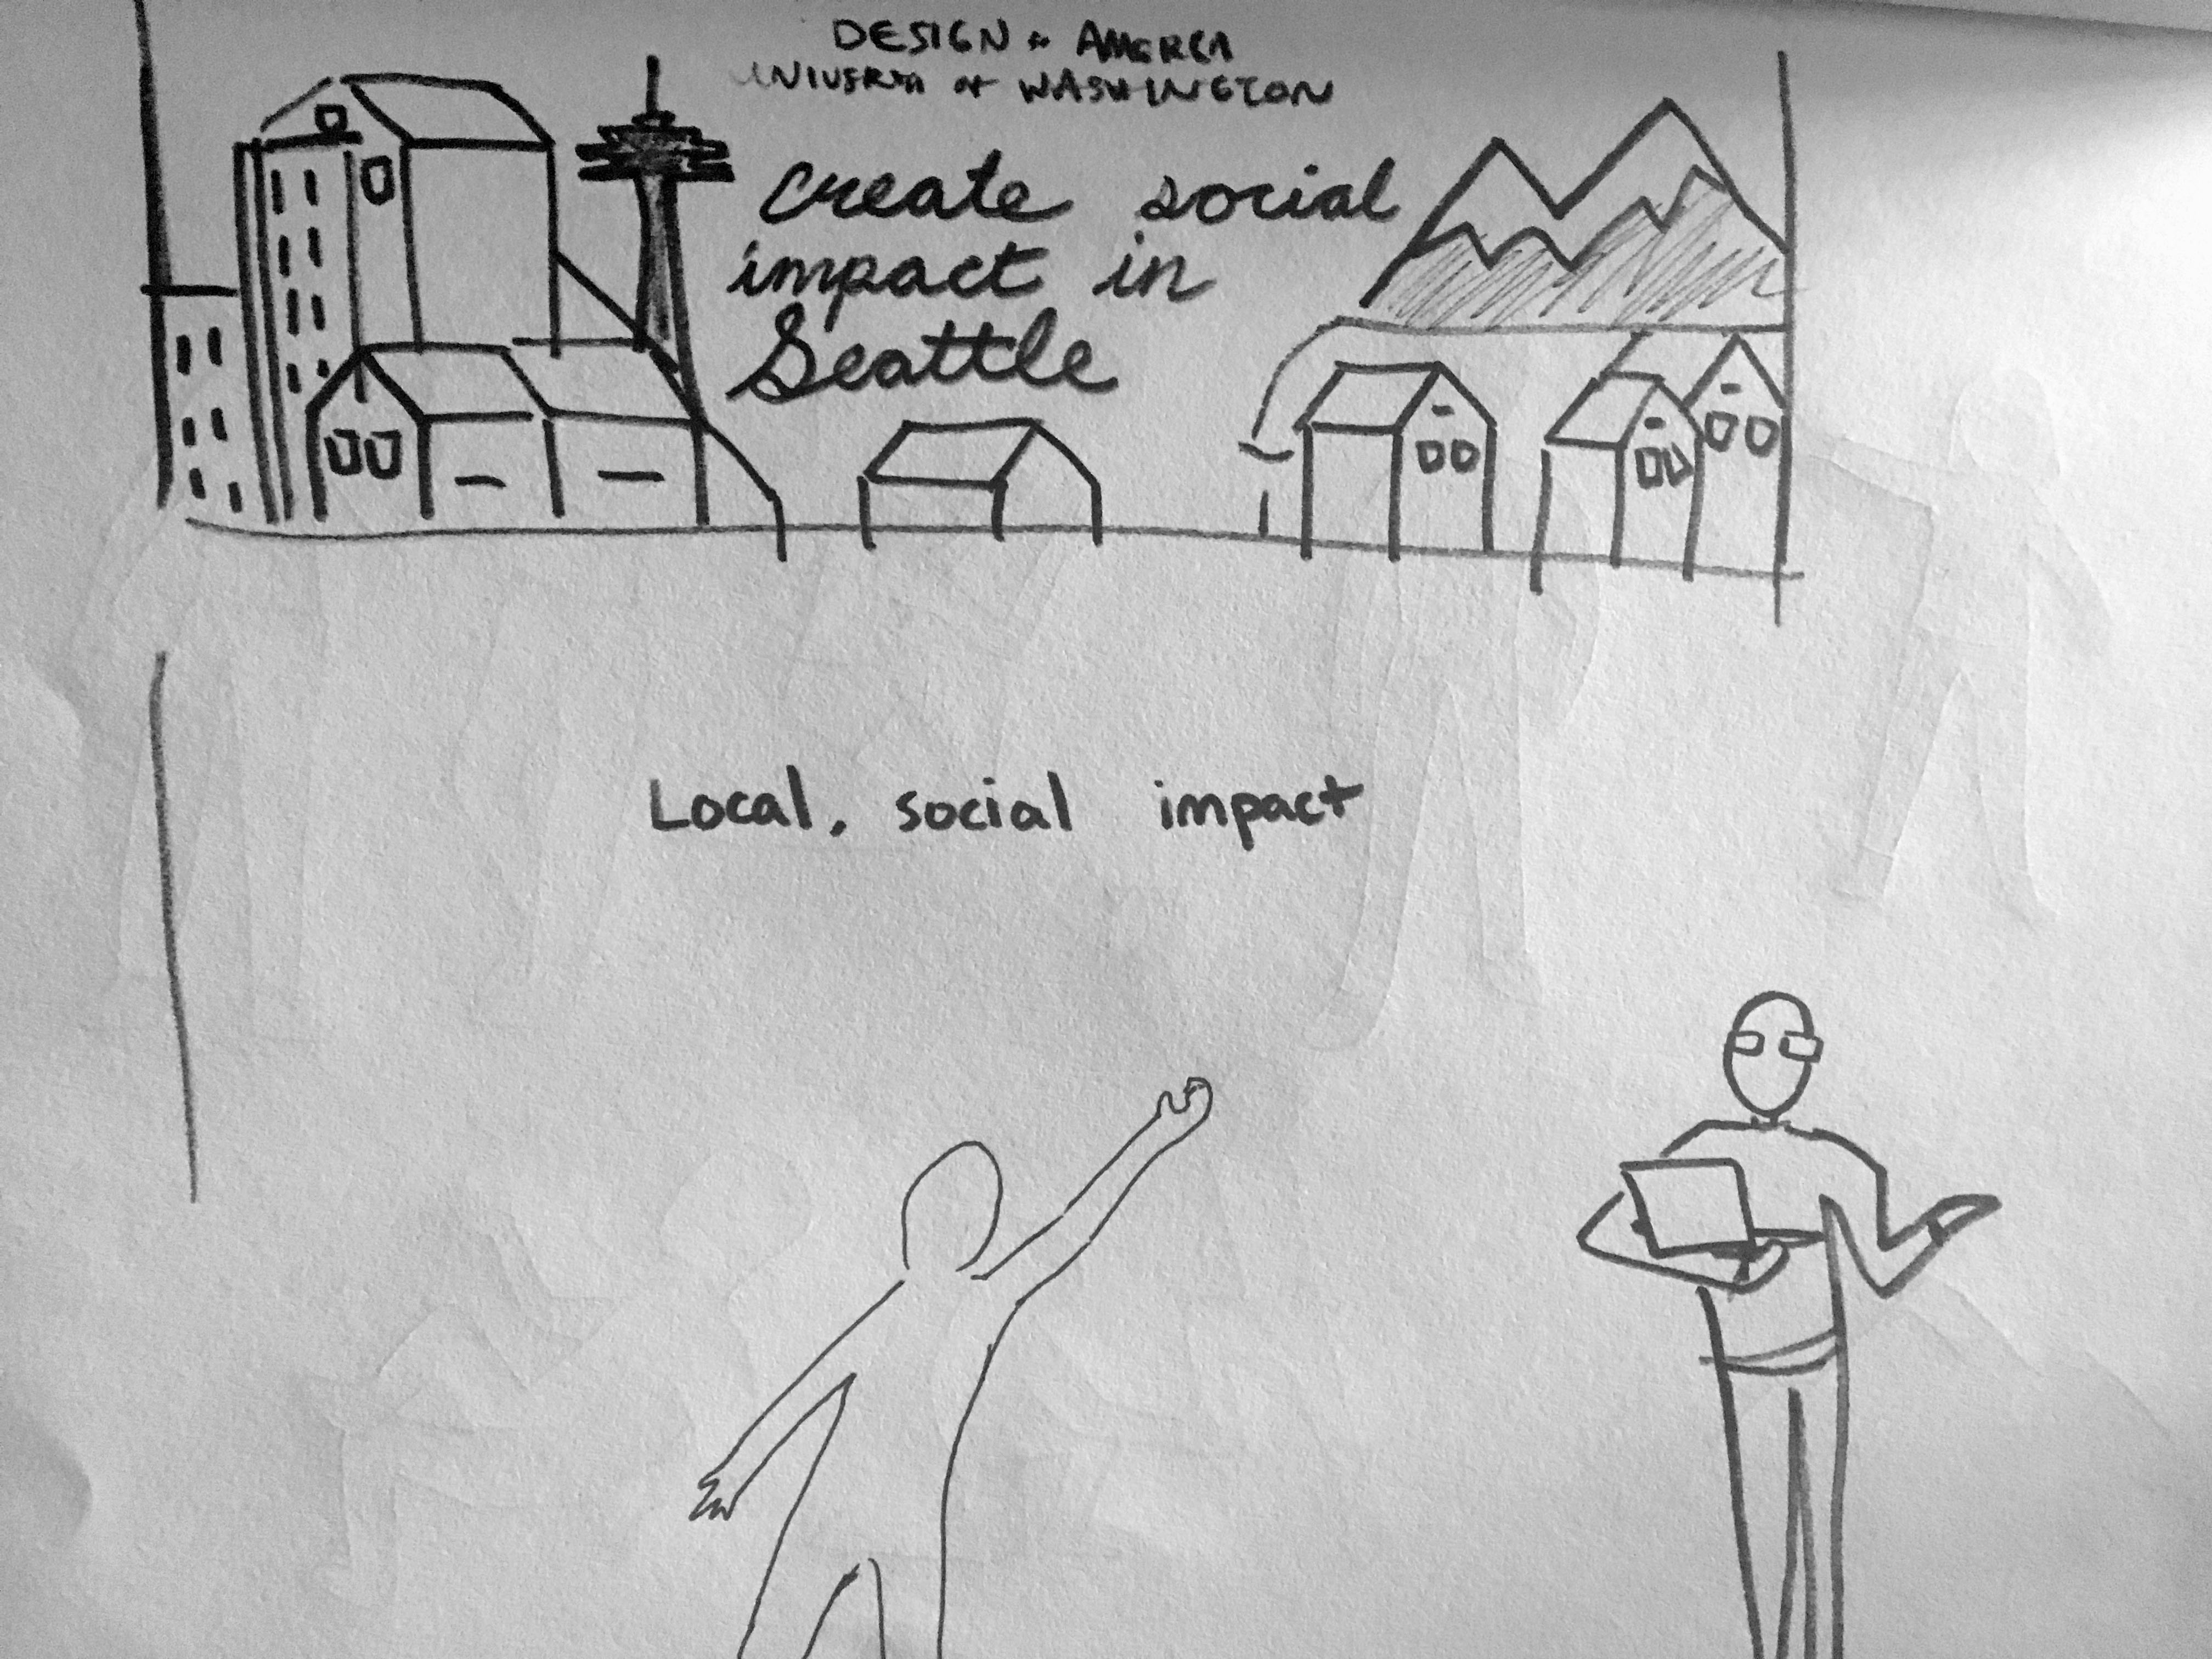 DESIGN for AMERICA
UNIVERSITY of WASHINGTON
create social
impact in
Seattle
Local, social impact